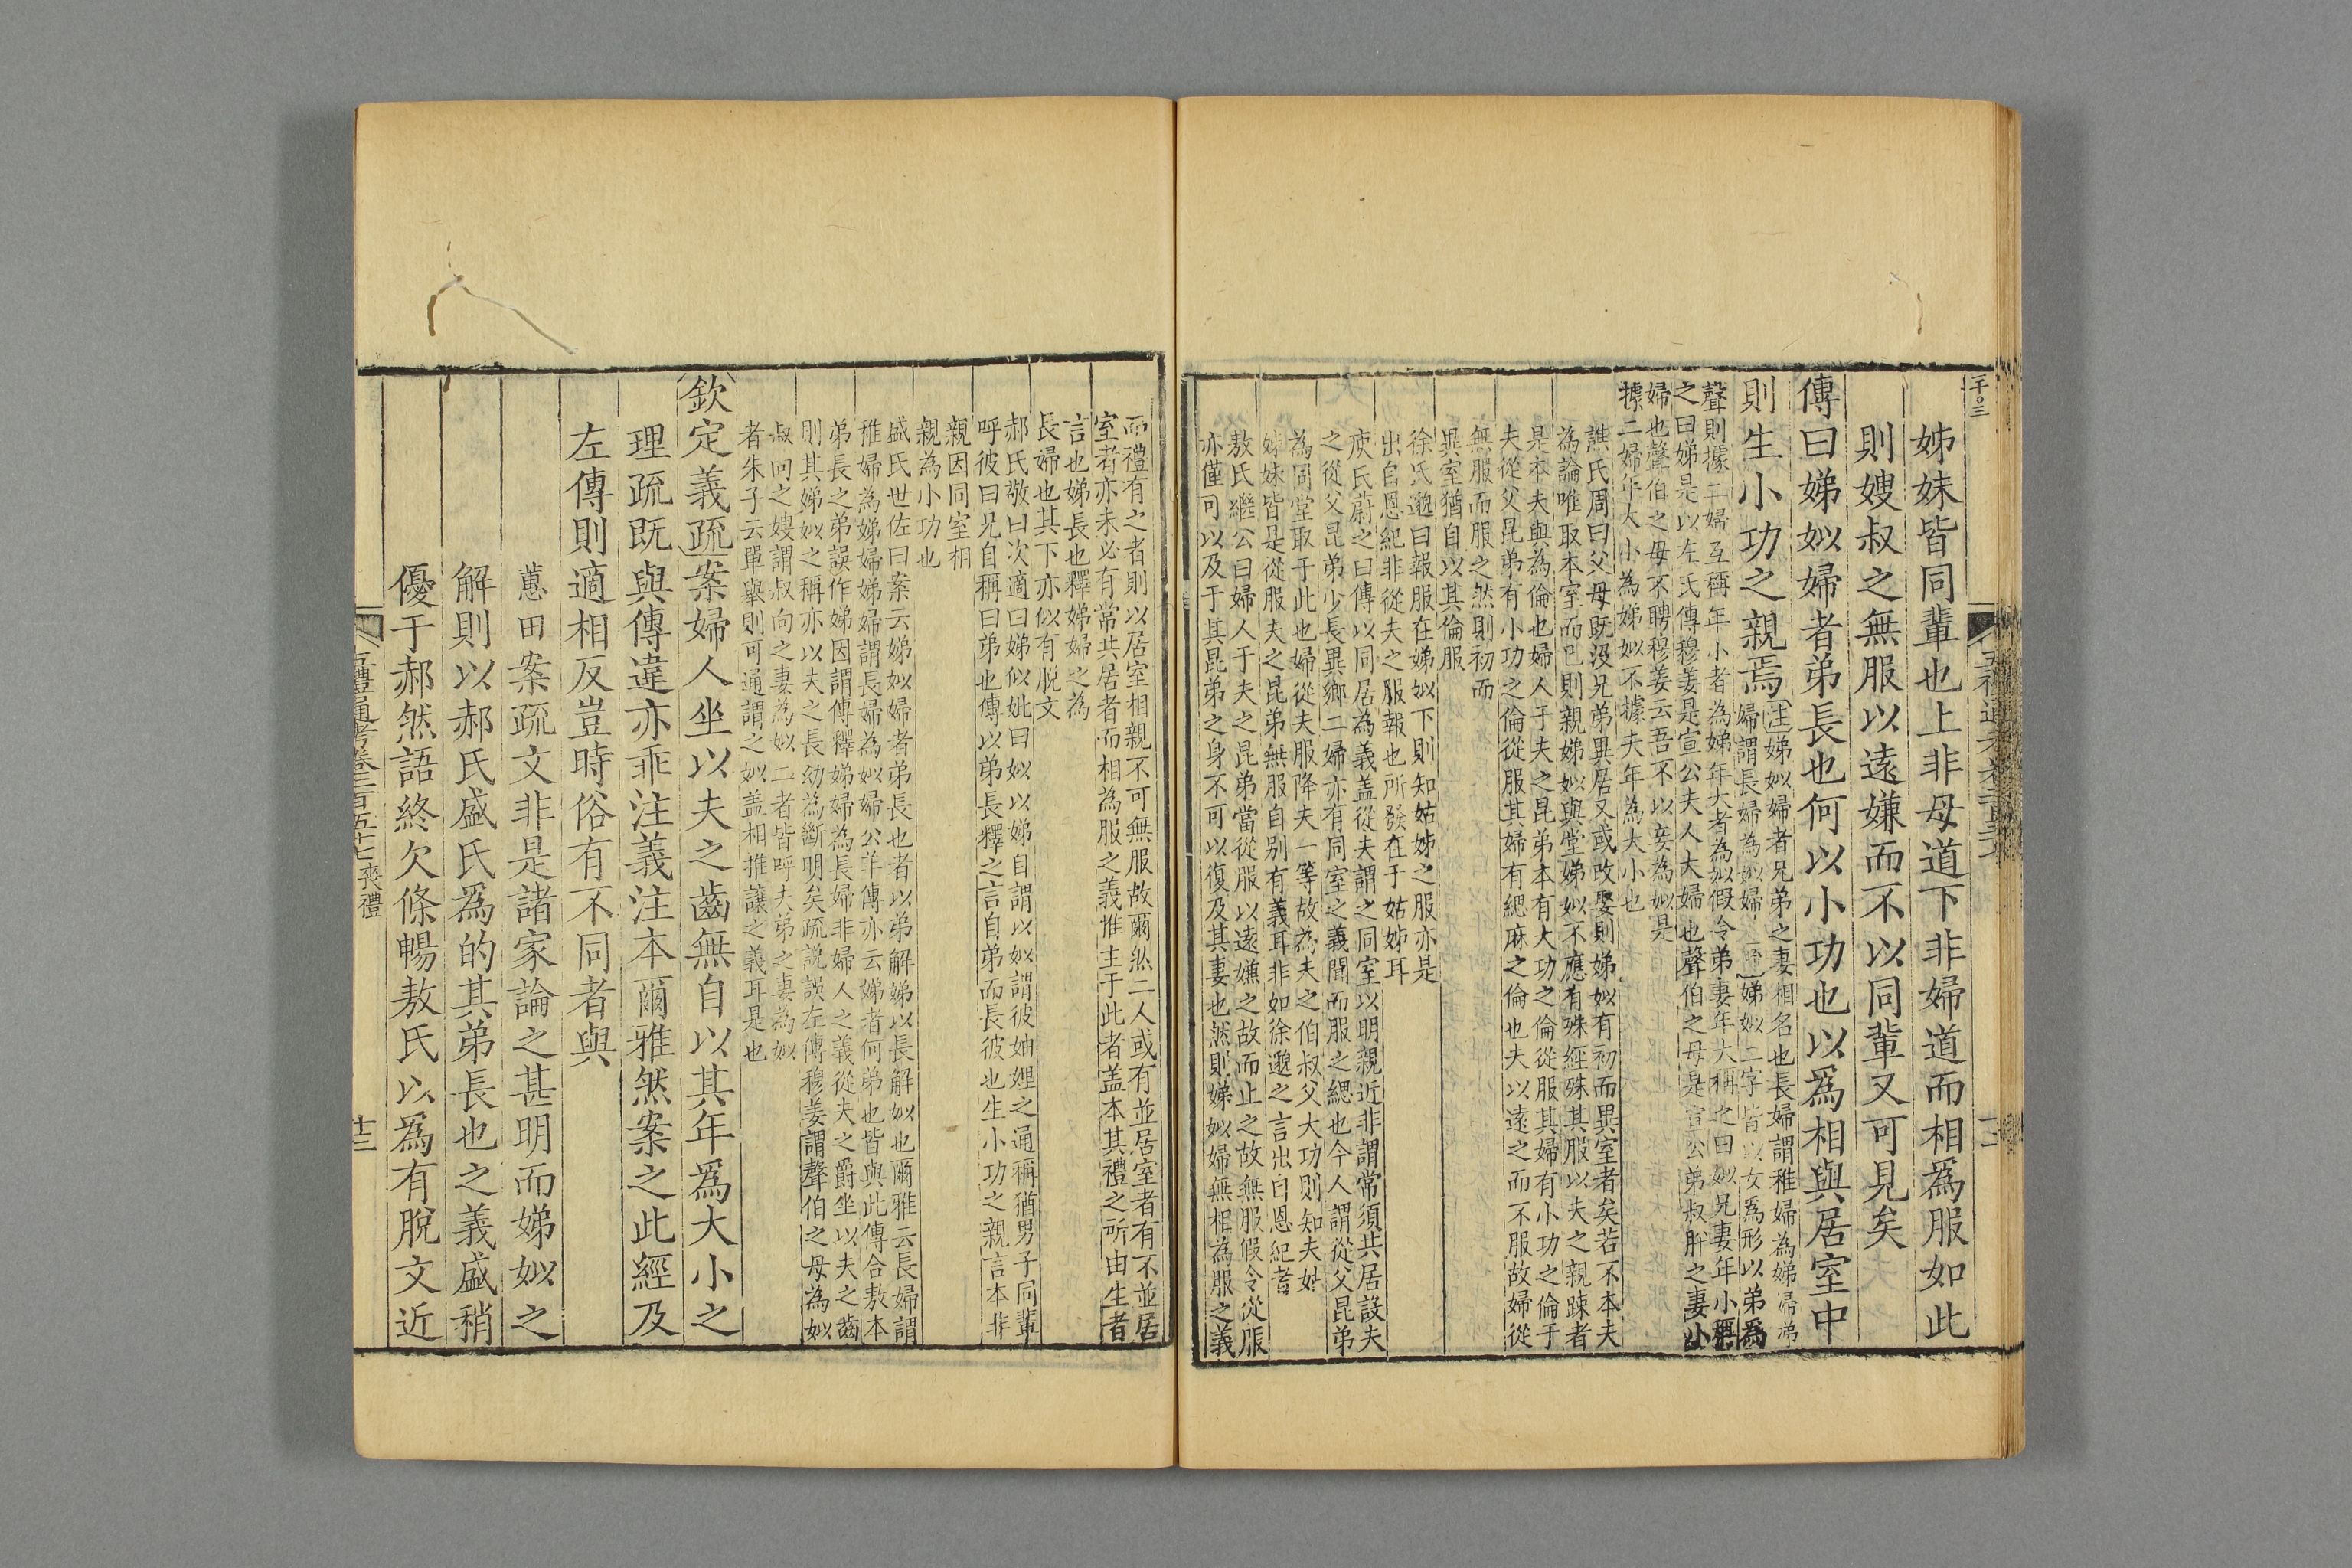 二千〇三
姊妹皆同輩也上非母道下非婦道而相爲服如此
則嫂叔之無服以遠嫌而不以同輩又可見矣
傳曰娣姒婦者弟長也何以小功也以爲相與居室中
則生小功之親焉 注 娣姒婦者兄弟之妻相名也長婦謂稚婦為娣婦娣
婦謂長婦為姒婦 疏 娣姒二字皆以女爲形以弟爲
聲則據二婦互稱年小者為娣年大者為姒假令弟妻年大稱之曰姒兄妻年小稱
之曰娣是以左氏傳穆姜是宣公夫人大婦也聲伯之母是宣公弟叔肸之妻小
婦也聲伯之母不聘穆姜云吾不以妾為姒是
據二婦年大小為娣姒不據夫年為大小也
譙氏周曰父母既沒兄弟異居又或改娶則娣姒有初而異室者矣若不本夫
為論唯取本室而已則親娣姒與堂娣姒不應有殊經殊其服以夫之親踈者
是本夫與為倫也婦人于夫之昆弟本有大功之倫從服其婦有小功之倫于
夫從父昆弟有小功之倫從服其婦有緦麻之倫也夫以遠之而不服故婦從
無服而服之然則初而
異室猶自以其倫服
徐氏邈曰報服在娣姒下則知姑姊之服亦是
出自恩紀非從夫之服報也所發在于姑姊耳
庾氏蔚之曰傳以同居為義蓋從夫謂之同室以明親近非謂常須共居設夫
之從父昆弟少長異鄉二婦亦有同室之義聞而服之緦也今人謂從父昆弟
為同堂取于此也婦從夫服降夫一等故為夫之伯叔父大功則知夫姑
姊妹皆是從服夫之昆弟無服自别有義耳非如徐邈之言出自恩紀者
敖氏繼公曰婦人于夫之昆弟當從服以遠嫌之故而止之故無服假令從服
亦僅可以及于其昆弟之身不可以復及其妻也然則娣姒婦無相為服之義
而禮有之者則以居室相親不可無服故爾然二人或有並居室者有不並居
室者亦未必有常共居者而相為服之義惟主于此者蓋本其禮之所由生者
言也娣長也釋娣婦之為
長婦也其下亦似有脫文
郝氏敬曰次適曰娣似妣曰姒以娣自謂以姒謂彼妯娌之通稱猶男子同輩
呼彼曰兄自稱曰弟也傳以弟長釋之言自弟而長彼也生小功之親言本非
親因同室相
親為小功也
盛氏世佐曰案云娣姒婦者弟長也者以弟解娣以長解姒也爾雅云長婦謂
稚婦為娣婦娣婦謂長婦為姒婦公羊傳亦云娣者何弟也皆與此傳合敖本
弟長之弟誤作娣因謂傳釋娣婦為長婦非婦人之義從夫之爵坐以夫之齒
則其娣姒之稱亦以夫之長幼為斷明矣疏說誤左傳穆姜謂聲伯之母為姒
叔向之嫂謂叔向之妻為姒二者皆呼夫弟之妻為姒
者朱子云單舉則可通謂之姒盖相推讓之義耳是也
欽定義疏案婦人坐以夫之齒無自以其年爲大小之
理疏既與傳違亦乖注義注本爾雅然案之此經及
左傳則適相反豈時俗有不同者與
蕙田案疏文非是諸家論之甚明而娣姒之
解則以郝氏盛氏爲的其弟長也之義盛稍
優于郝然語終欠條暢敖氏以爲有脫文近
五禮通考卷二百五十七 喪禮
廿三